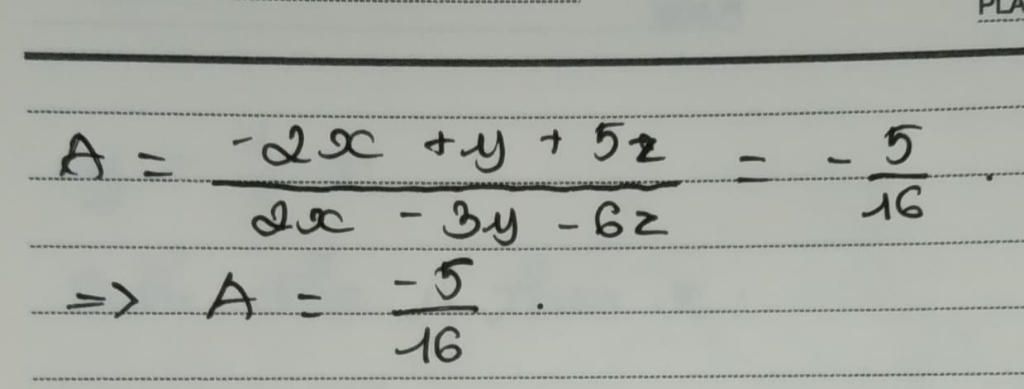 PLA
A = (-2x + y + 5z) / (2x - 3y - 6z) = - 5/16 .
=> A = -5/16 .